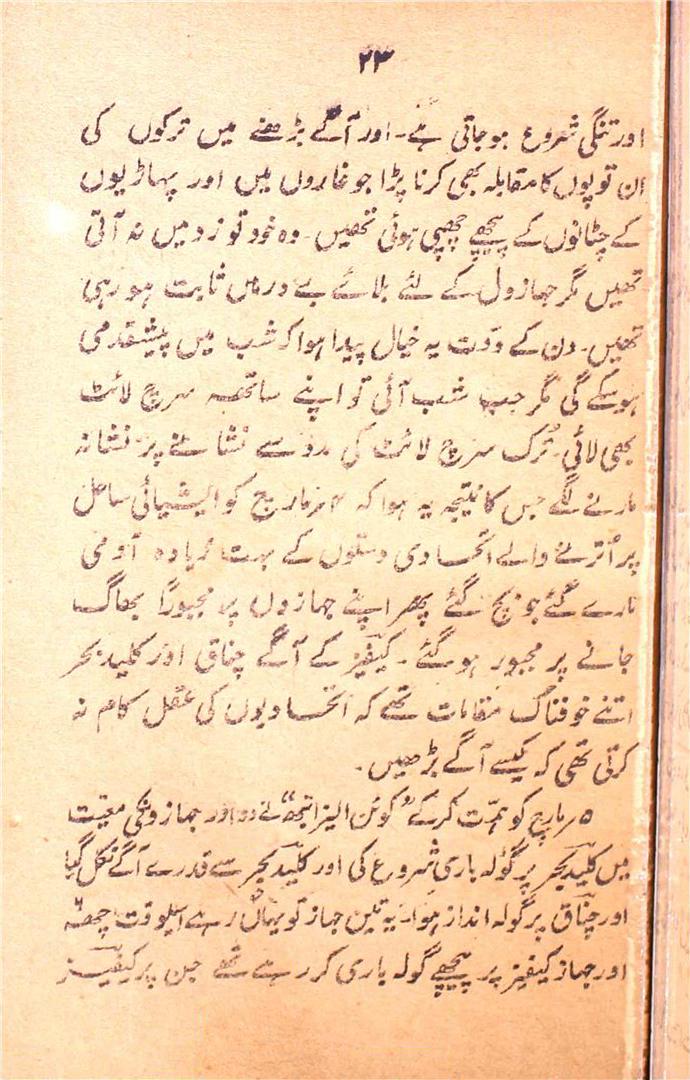 ۲۳
اور تنگی شروع ہو جاتی ہے۔ اور آگے بڑھنے میں ترکوں کی
ان توپوں کا مقابلہ بھی کرنا پڑا جو غاروں میں اور پہاڑیوں
کے چٹانوں کے پیچھے چھپی ہوئی تھیں۔ وہ خود تو زد میں نہ آتی
تھیں مگر جہازوں کے لئے بلائے بے درماں ثابت ہو رہی
تھیں۔ دن کے وقت یہ خیال پیدا ہوا کہ شب میں پیشقدمی
ہو سکے گی مگر جب شب آئی تو اپنے ساتھ سرچ لائٹ
بھی لائی۔ تُرک سرچ لائٹ کی مدد سے نشانے پر نشانہ
مارنے لگے جس کا نتیجہ یہ ہوا کہ ۴ مارچ کو ایشیائی ساحل
پر اُترنے والے اتحادی دستوں کے بہت زیادہ آدمی
مارے گئے جو بچ گئے پھر اپنے جہازوں پر مجبوراً بھاگ
جانے پر مجبور ہو گئے۔ کیفیز کے آگے چناق اور کلید بحر
اتنے خوفناک مقامات تھے کہ اتحادیوں کی عقل کام نہ
کرتی تھی کہ کیسے آگے بڑھیں۔
۵ مارچ کو ہمت کر کے "کوئن الیزابتھ" نے دو اور جہازونکی معیت
میں کلید بحر پر گولہ باری شروع کی اور کلید بحر سے قدرے آگے نکل گیا
اور چناق پر گولہ انداز ہوا۔ یہ تین جہاز تو یہاں رہے اسوقت چھہ
اور جہاز کیفیز پر پیچھے گولہ باری کر رہے تھے جن پر کیفیز